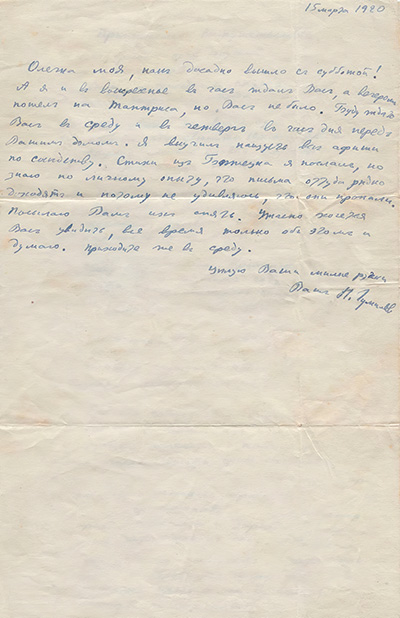 15 марта 1920
Олечка моя, как досадно вышло с субботой!
А я и в воскресенье в час ждал Вас, а вечером
пошел на Тантриса, но Вас не было. Буду ждать
Вас в среду и в четверг в час дня перед
Вашим домом. Я выучил наизусть все афиши
по соседству. Стихи из Бежецка я послал, но
знаю по личному опыту, что письма оттуда редко
доходят и потому не удивляюсь, что они пропали.
Посылаю Вам их опять. Ужасно хочется
Вас увидеть, все время только об этом и
думаю. Приходите же в среду.
Целую Ваши милые ручки
Ваш Н. Гумилев